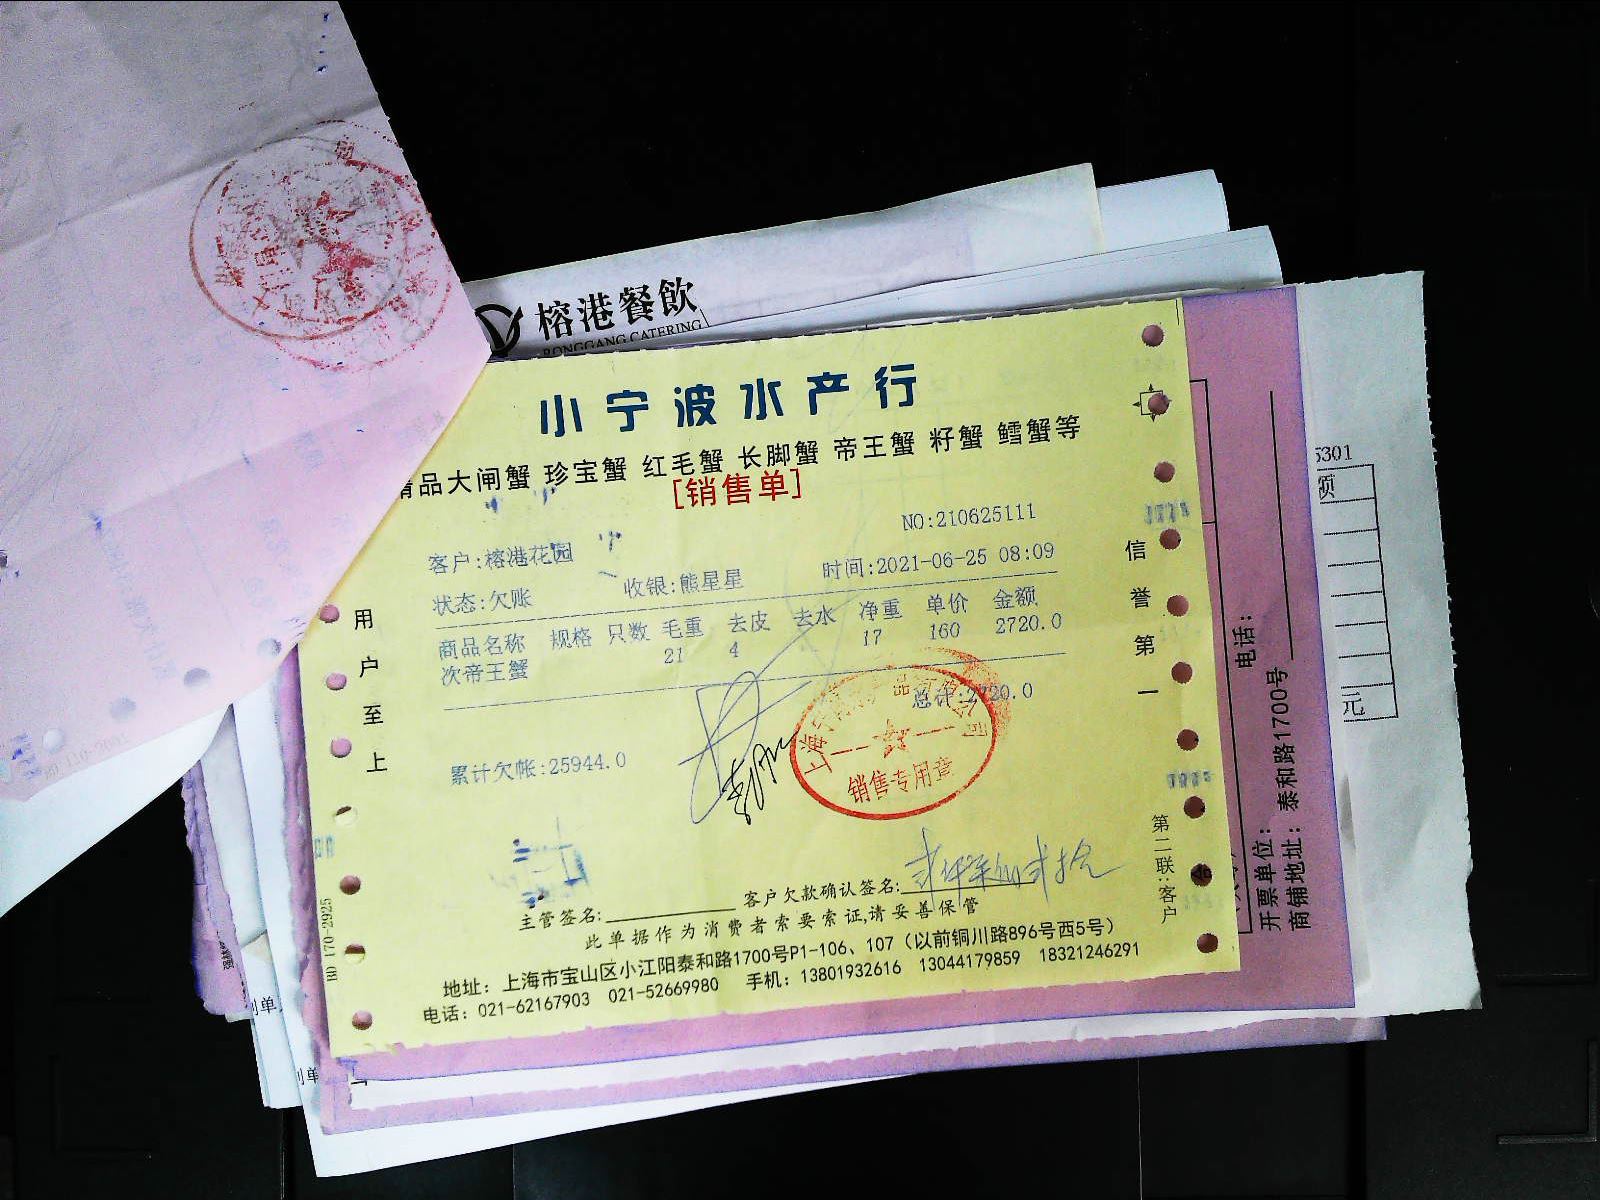 榕港餐飲
RONGGANG CATERING
小宁波水产行
精品大闸蟹 珍宝蟹 红毛蟹 长脚蟹 帝王蟹 籽蟹 鳕蟹等
[销售单]
NO:210625111
客户:榕港花园
状态:欠账 收银:熊星星 时间:2021-06-25 08:09
商品名称 规格 只数 毛重 去皮 去水 净重 单价 金额
次帝王蟹 21 4 17 160 2720.0
总计:2720.0
累计欠帐:25944.0
销售专用章
主管签名: 客户欠款确认签名:
此单据作为消费者索要索证,请妥善保管
地址：上海市宝山区小江阳泰和路1700号P1-106、107（以前铜川路896号西5号）
电话：021-62167903 021-52669980 手机：13801932616 13044179859 18321246291
用户至上
信誉第一
第二联:客户
BD 170-2925
电话：
开票单位：
商铺地址：泰和路1700号
5301
额
元
制单
制单